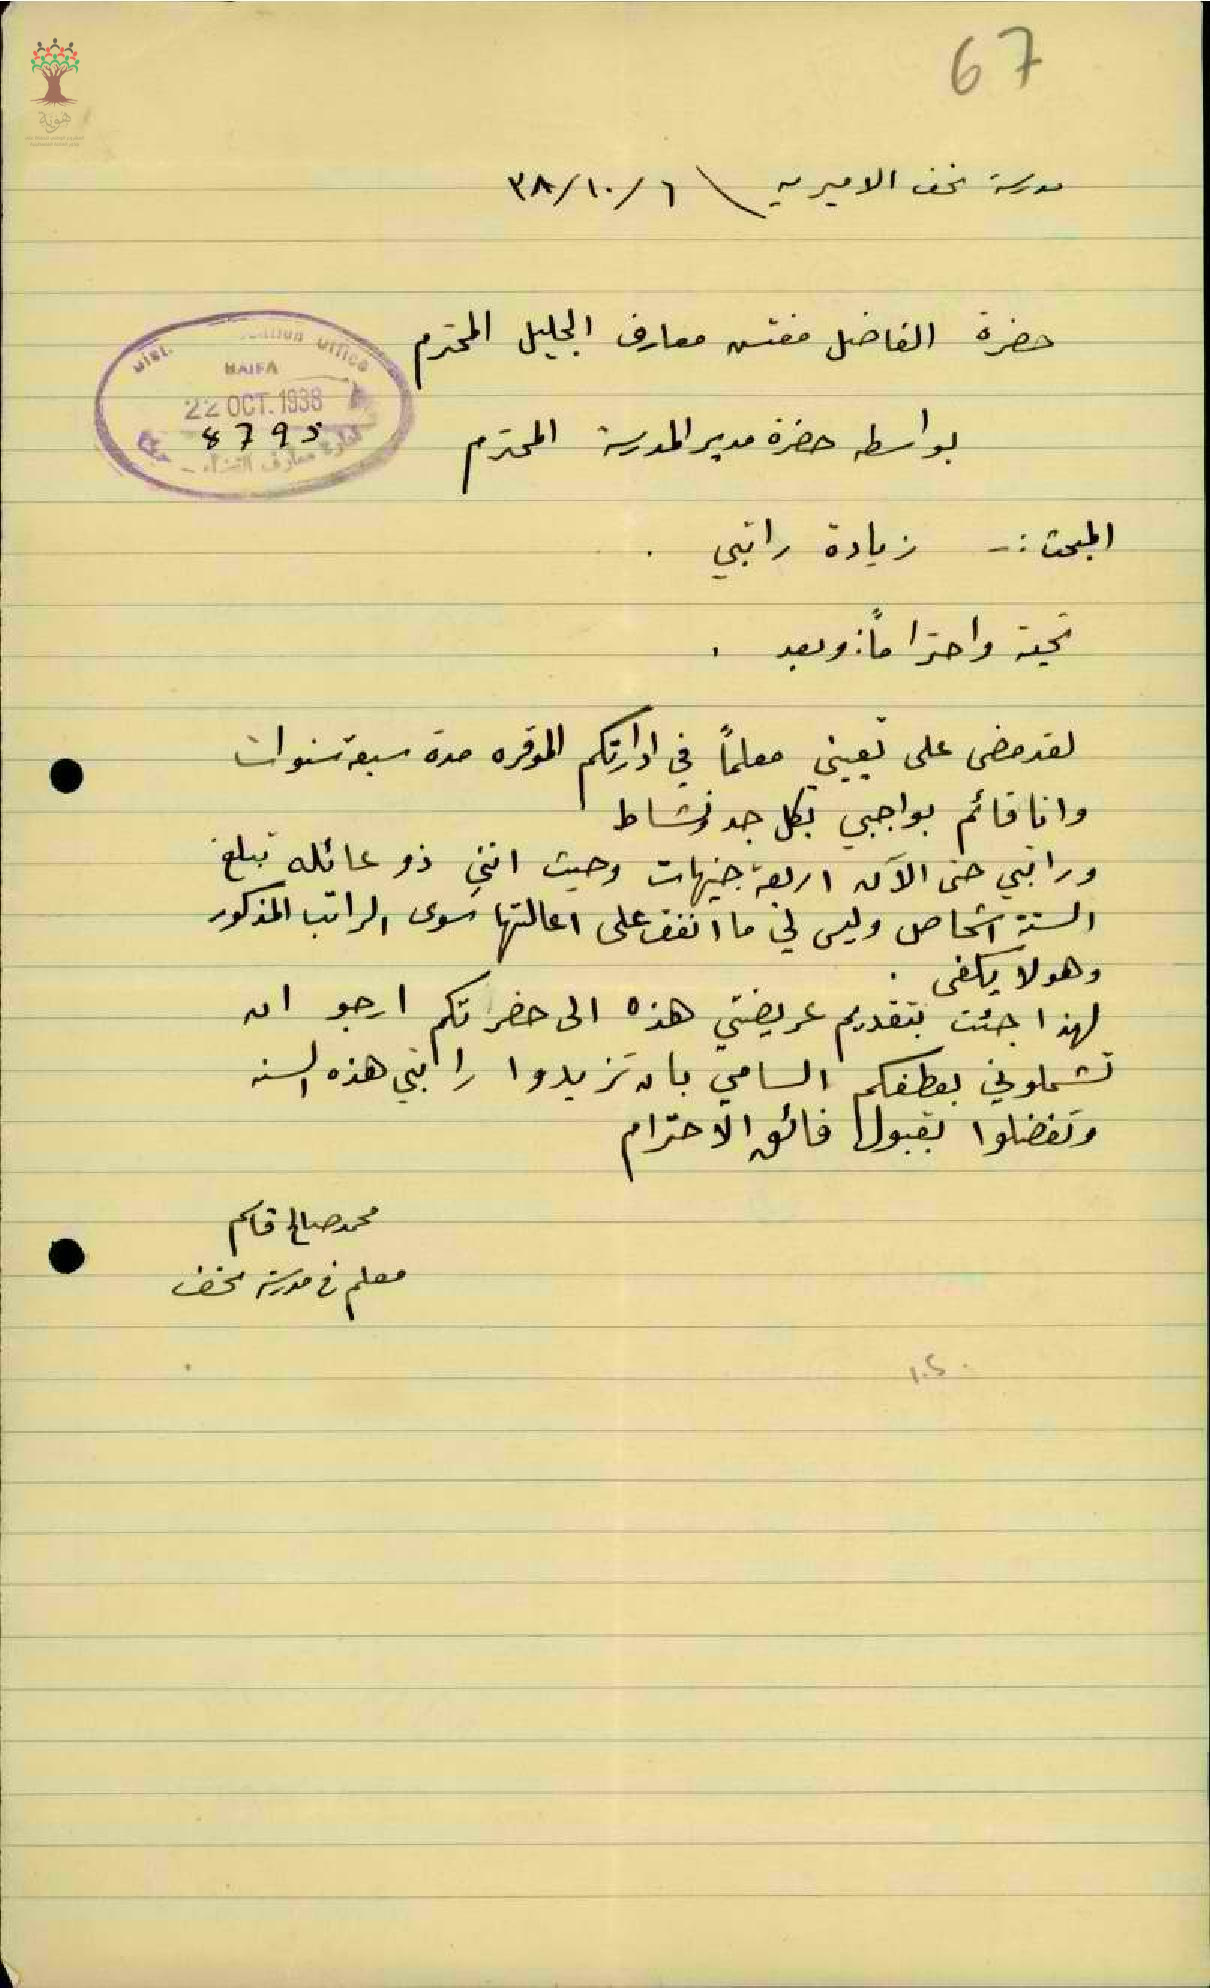 67
مدرسة نحف الاميريه \ ٦/١٠/٣٨
حضرة الفاضل مفتش معارف الجليل المحترم
Dist. Education Office
HAIFA
22 OCT. 1938
8795
ادارة معارف القضاء - حيفا
بواسطه حضرة مدير المدرسة المحترم
المبحث :- زيادة راتبي .
تحية واحتراماً: وبعد .
لقد مضى على تعييني معلماً في ادارتكم الموقره مدة سبعة سنوات
وانا قائم بواجبي بكل جد ونشاط
وراتبي حتى الآن اربعة جنيهات وحيث انني ذو عائله تبلغ
الستة اشخاص وليس لي ما انفق على اعالتها سوى الراتب المذكور
وهو لا يكفى .
لهذا جئت بتقديم عريضتي هذه الى حضرتكم ارجو ان
تشملوني بعطفكم السامي بان تزيدوا راتبي هذه السنه
وتفضلوا بقبول فائق الاحترام
محمد صالح قاسم
معلم في مدرسة نحف
هوية